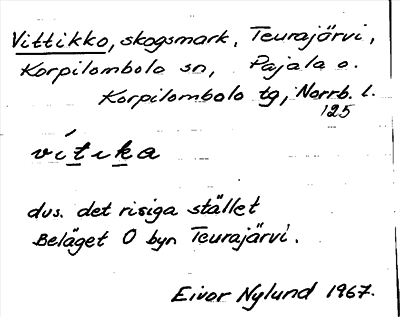 Vittikko, skogsmark, Teurajärvi,
Korpilombolo sn, Pajala o.
Korpilombolo tg, Norrb. l.
125
vítika
dvs. det risiga stället
Beläget O byn Teurajärvi.
Eivor Nylund 1967.